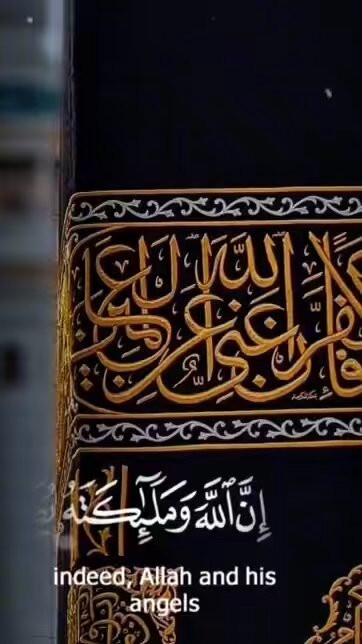 كفر فإن الله غني عن العالمين
إِنَّ ٱللَّهَ وَمَلَـٰٓئِكَتَهُۥ
indeed, Allah and his
angels